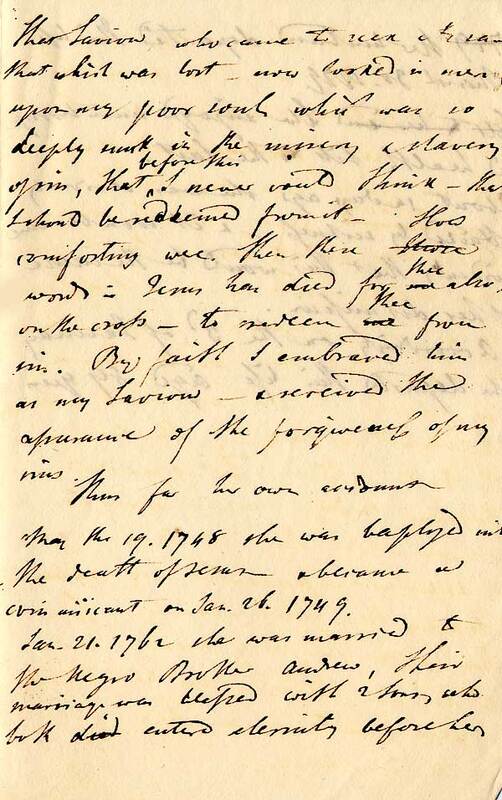 that Saviour who came to seek & sa-
that which was lost - now worked in mercy
upon my poor soul, which was so
deeply sunk in the misery & slavery
before this
of sin, that I never could think - that
I should be redeemed from it - How
comforting were then these
thee
words = Jesus has died for me also,
thee
on the cross - to redeem me from
sin. By faith I embraced him
as my Saviour - & received the
assurance of the forgiveness of my
sins
Thus far her own account
May the 19. 1748 she was baptized into
the death of Jesus & became a
communicant on Jan. 26. 1749.
Jan. 21. 1762 she was married to
the Negro Brother Andrew, Their
marriage was blessed with 2 sons, who
both died entered eternity before her